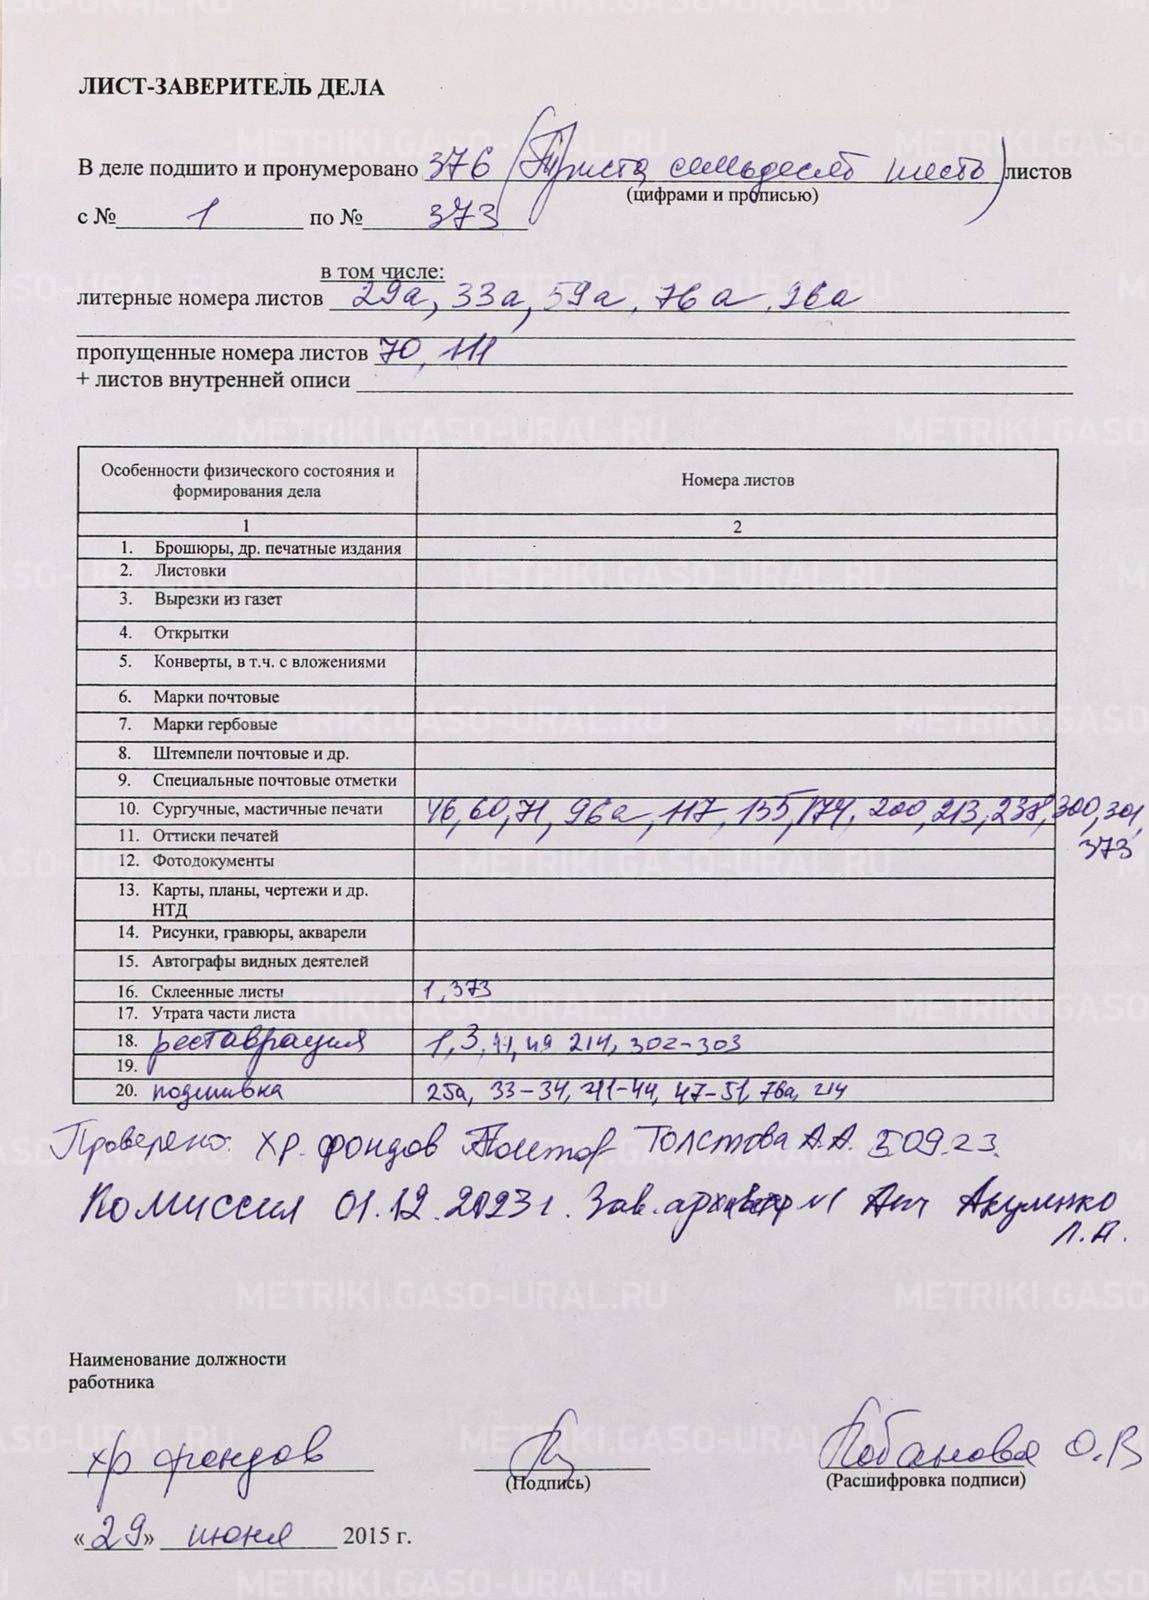 ЛИСТ-ЗАВЕРИТЕЛЬ ДЕЛА
В деле подшито и пронумеровано 376 (Триста семьдесят шесть) листов
(цифрами и прописью)
с № 1 по № 373
в том числе:
литерные номера листов 29а, 33а, 59а, 76а, 96а
пропущенные номера листов 70, 111
+ листов внутренней описи
Особенности физического состояния и формирования дела
Номера листов
1 2
1. Брошюры, др. печатные издания
2. Листовки
3. Вырезки из газет
4. Открытки
5. Конверты, в т.ч. с вложениями
6. Марки почтовые
7. Марки гербовые
8. Штемпели почтовые и др.
9. Специальные почтовые отметки
10. Сургучные, мастичные печати 46, 60, 71, 96а, 117, 155, 174, 200, 213, 238, 300, 301,
373
11. Оттиски печатей
12. Фотодокументы
13. Карты, планы, чертежи и др.
НТД
14. Рисунки, гравюры, акварели
15. Автографы видных деятелей
16. Склеенные листы 1, 373
17. Утрата части листа
18. реставрация 1, 3, 49 214, 302-303
19.
20. подшивка 25а, 33-34, 47-51, 76а, 214
Проверено: хр. фондов Толстова А.А. 5.09.23.
Комиссия 01.12.2023 г. Зав. Акуленко
Л.А.
Наименование должности
работника
хр фондов
(Подпись)
Лобанова О.В
(Расшифровка подписи)
«29» июня 2015 г.
METRIKI.GASO-URAL.RU